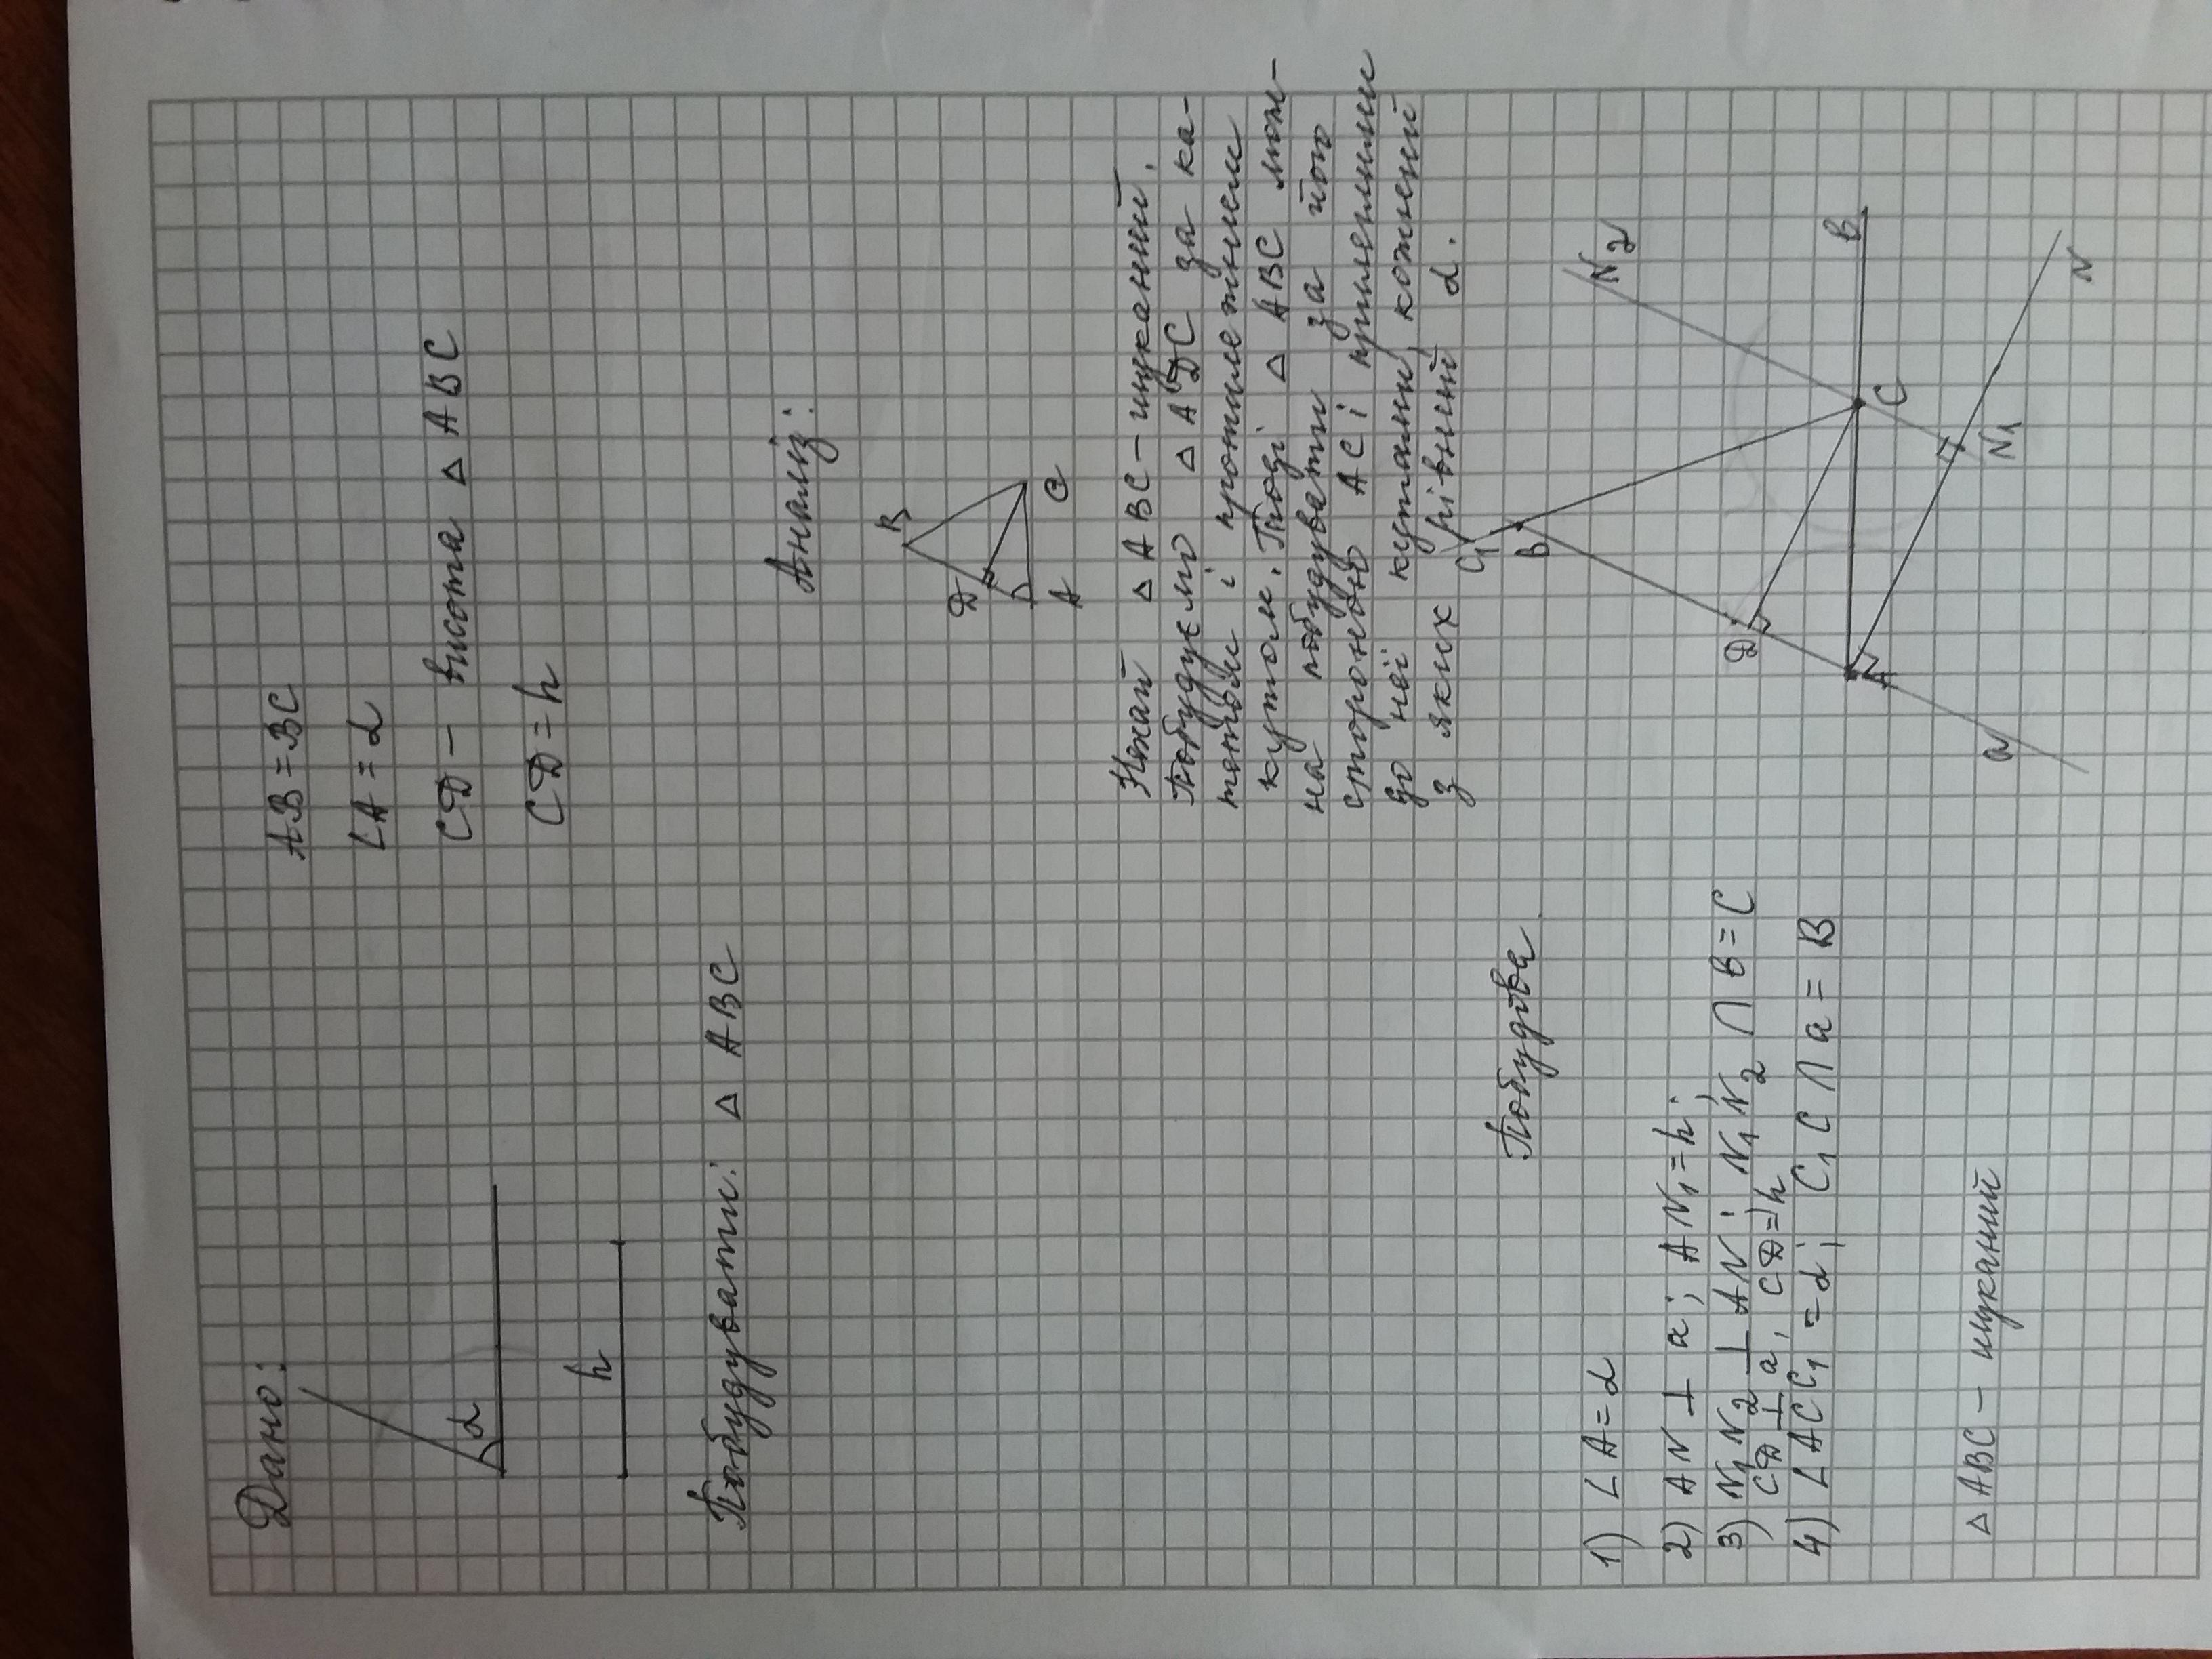 Дано:
α
h
AB = BC
∠A = α
CD – висота △ ABC
CD = h
Побудувати: △ ABC
Аналіз:
B
D
A
C
Нехай △ ABC – шуканий.
Побудуємо △ ADC за ка-
тетом і протилежним
кутом. Тоді △ ABC мож-
на побудувати за його
стороною AC і прилеглими
до неї кутами, кожений
з яких рівний α.
Побудова
1) ∠A = α
2) AN ⊥ a; AN₁ = h;
3) N₁N₂ ⊥ AN; N₁N₂ ∩ B = C
CD ⊥ a, CD = h
4) ∠ACC₁ = α; C₁C ∩ a = B
△ ABC – шуканий
C₁
B
N₂
D
B
A
C
a
N₁
N